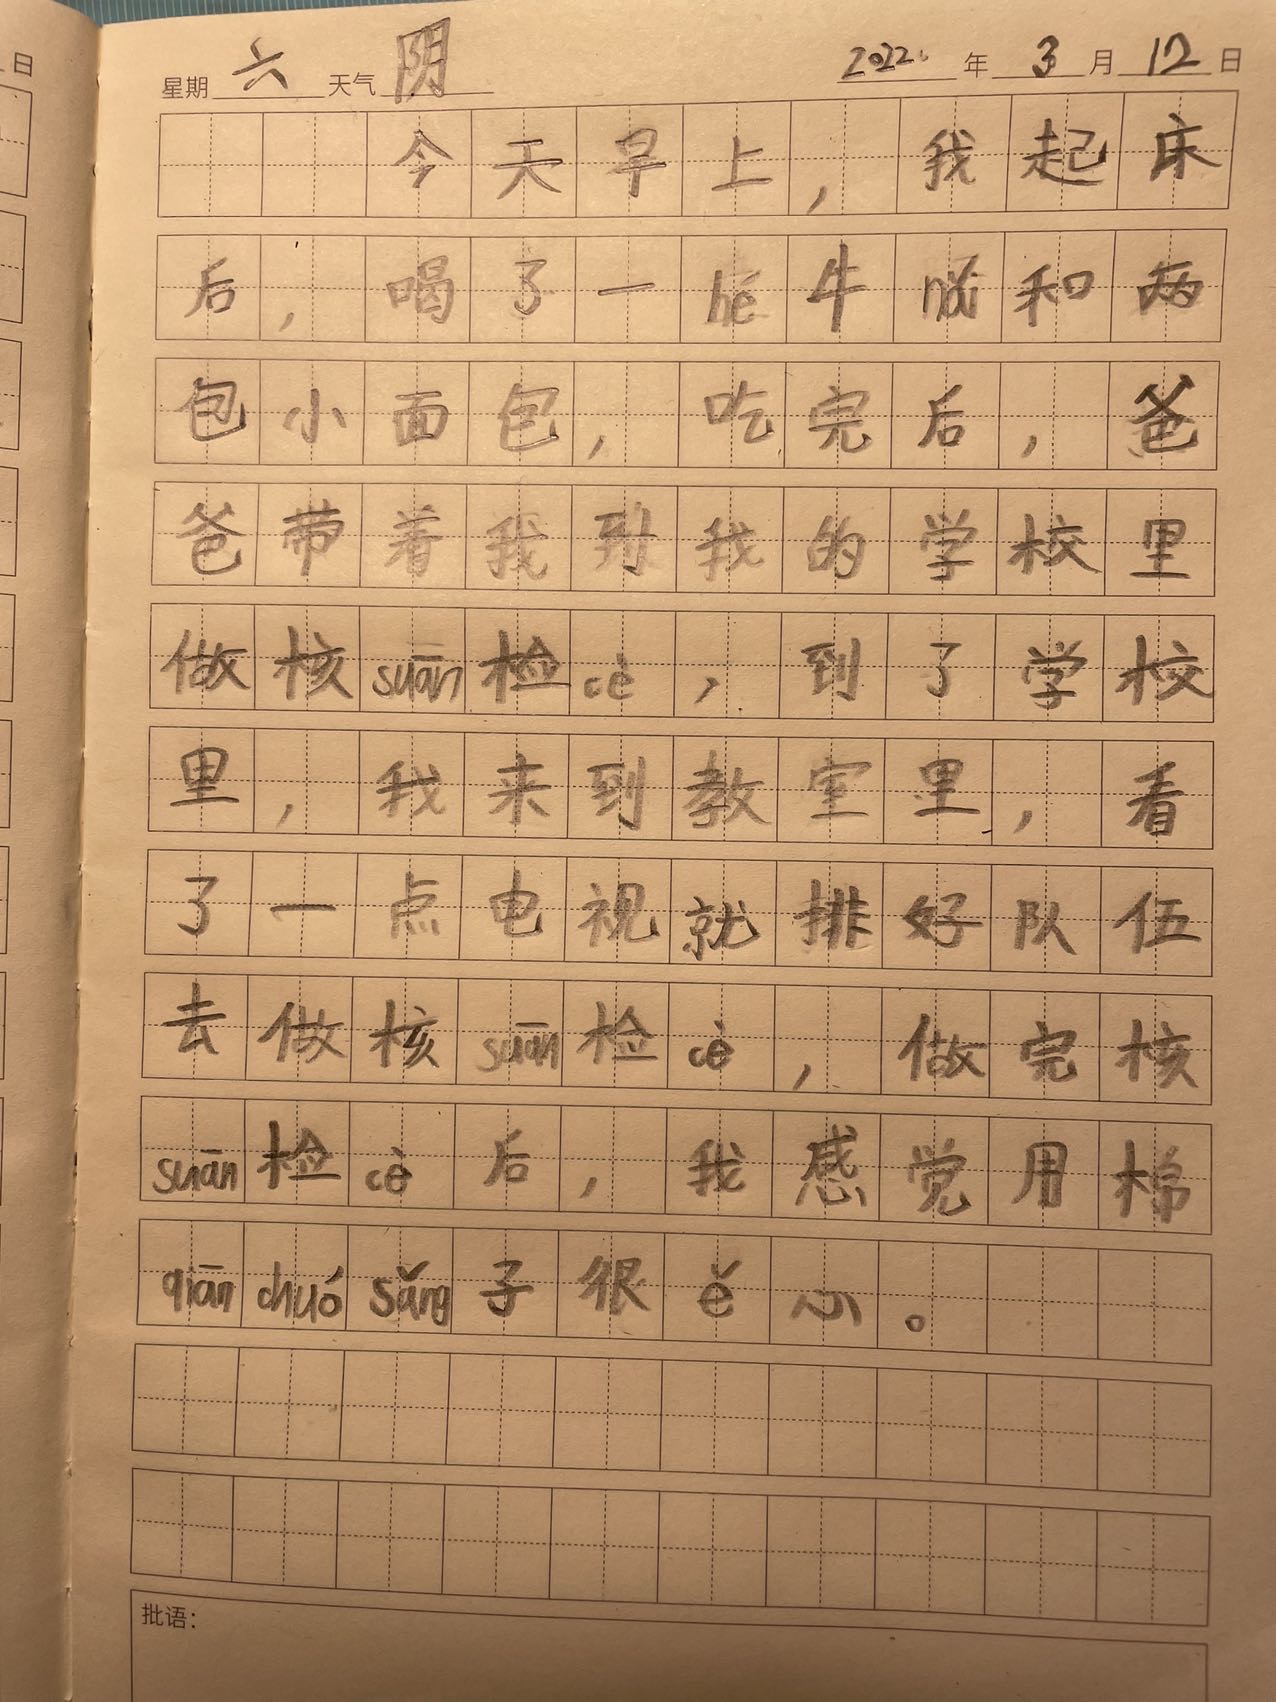 日
星期 六 天气 阴 2022 年 3 月 12 日
今天早上，我起床
后，喝了一hé牛nǎi和两
包小面包，吃完后，爸
爸带着我到我的学校里
做核suān检cè，到了学校
里，我来到教室里，看
了一点电视就排好队伍
去做核suān检cè，做完核
suān检cè后，我感觉用棉
qiān chuó sǎng子很ě心。
批语：